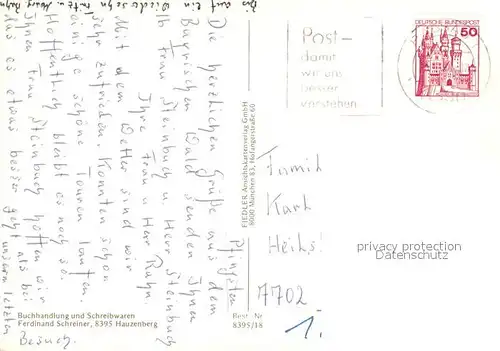 Pfingsten
Die herzlichen Grüße aus dem
Bayrischen Wald senden Ihnen
lb Frau Steinbuch u Herr Steinbuch
Ihre Frau u Herr Rahn.
Mit dem Wetter sind wir
sehr zufrieden. Konnten schon
einige schöne Touren laufen.
Hoffentlich bleibt es noch so.
Ihnen Frau Steinbuch hoffen wir
das es etwas besser geht als bei
unserm letzten
Besuch.
auf ein Wiedersehn
Buchhandlung und Schreibwaren
Ferdinand Schreiner, 8395 Hauzenberg
Best.-Nr.
8395/18
FIEDLER Ansichtskartenverlag GmbH
8000 München 83, Hofangerstraße 60
Post-
damit
wir uns
besser
verstehen
DEUTSCHE BUNDESPOST
50
Familie
Karl
7702
1.
privacy protection